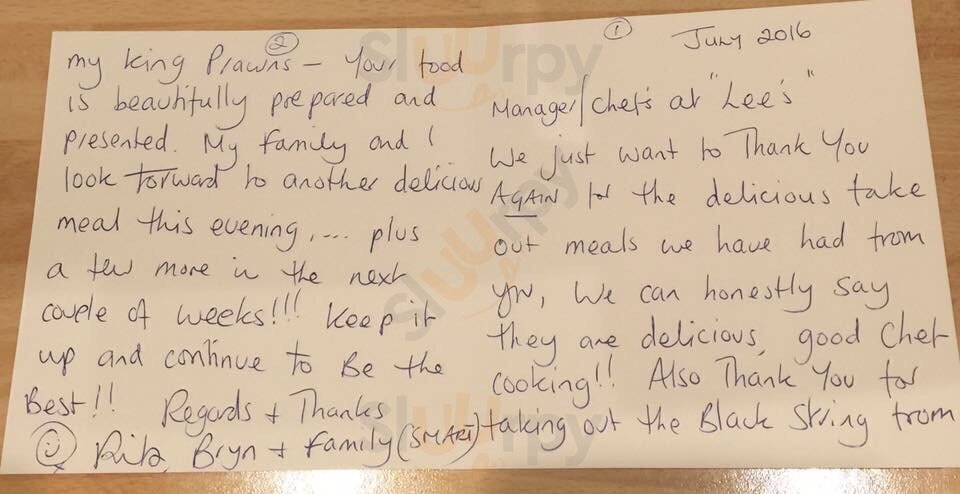 ①
July 2016
Manager/Chef's at "Lee's"
We just want to Thank You
AGAIN for the delicious take
out meals we have had from
you, We can honestly say
they are delicious, good Chef
cooking!! Also Thank You for
taking out the Black String from
②
my king Prawns – Your food
is beautifully prepared and
presented. My family and I
look forward to another delicious
meal this evening, ... plus
a few more in the next
couple of weeks!!! Keep it
up and continue to Be the
Best!! Regards + Thanks
Rita, Bryn + family (SMART)
Sluurpy
Sluurpy
Sluurpy